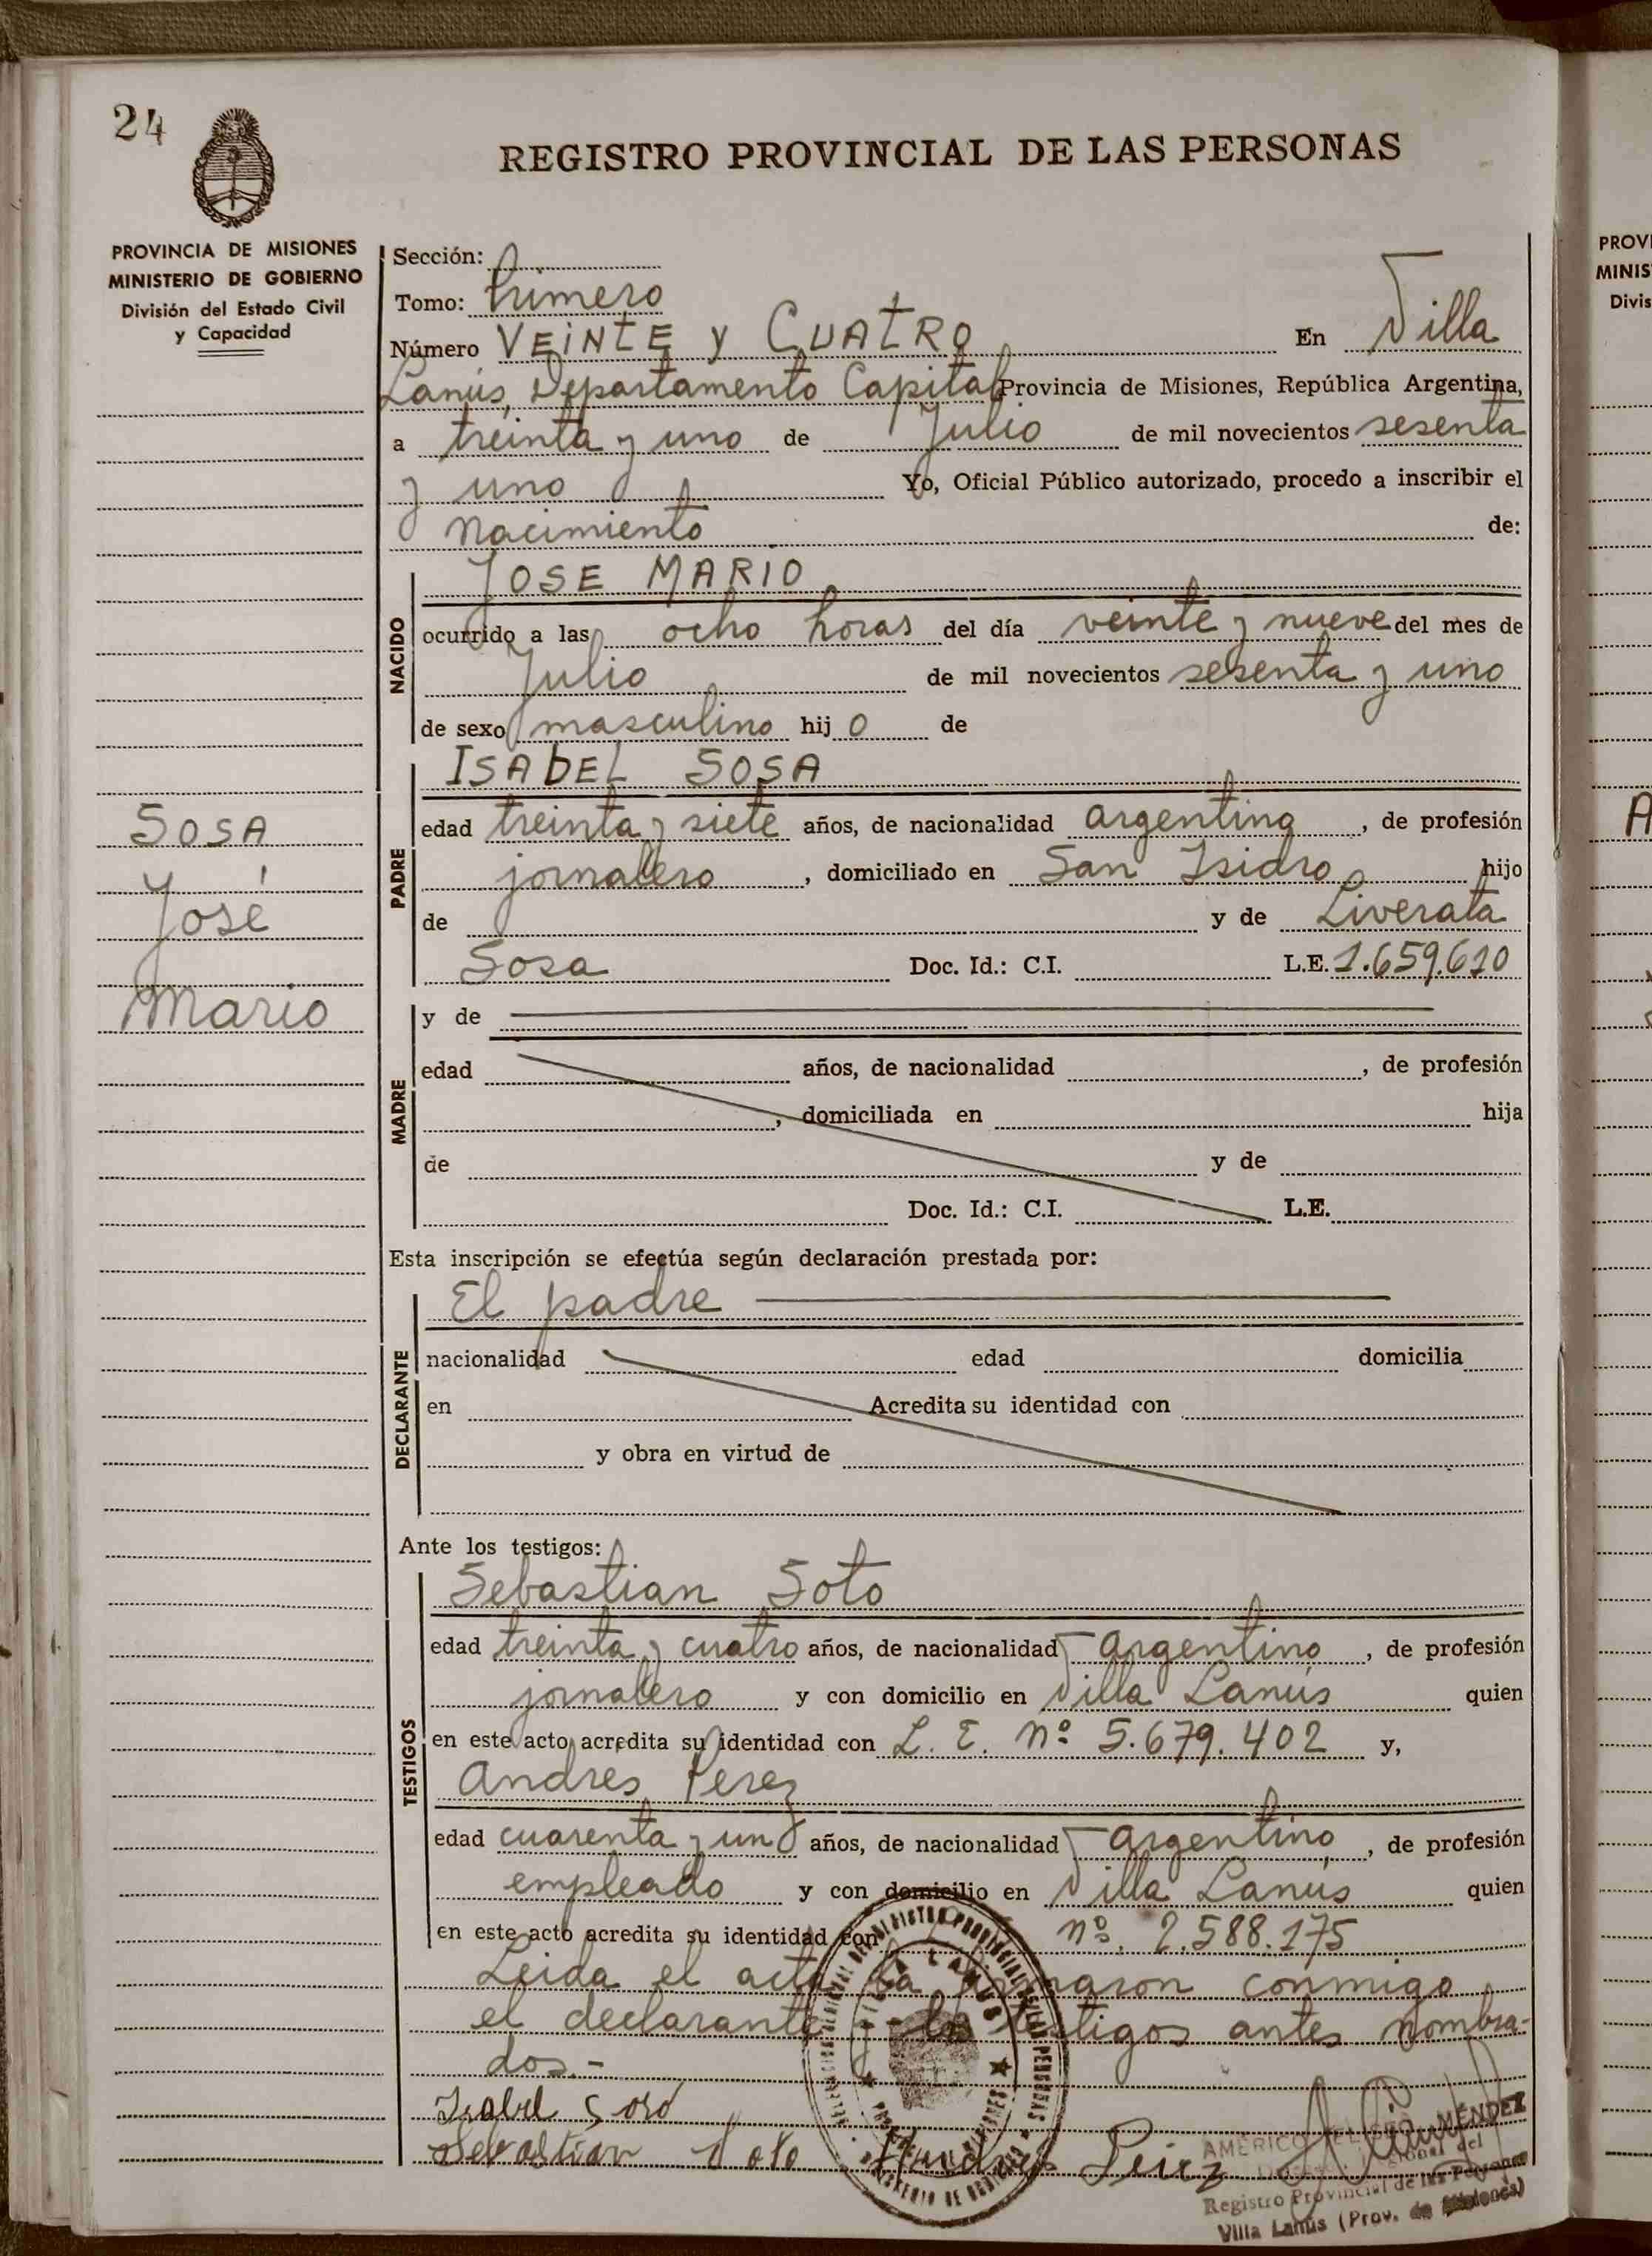 24
REGISTRO PROVINCIAL DE LAS PERSONAS
PROVINCIA DE MISIONES
MINISTERIO DE GOBIERNO
División del Estado Civil
y Capacidad
Sección:
Tomo: Primero
Número VEINTE y CUATRO En Villa
Lanús, Departamento Capital Provincia de Misiones, República Argentina,
a treinta y uno de Julio de mil novecientos sesenta
y uno Yo, Oficial Público autorizado, procedo a inscribir el
Nacimiento de:
NACIDO
JOSE MARIO
ocurrido a las ocho horas del día veinte y nueve del mes de
Julio de mil novecientos sesenta y uno
de sexo masculino hijo de
PADRE
ISAbEL SOSA
edad treinta y siete años, de nacionalidad argentina, de profesión
jornalero, domiciliado en San Isidro hijo
de y de Liverata
Sosa Doc. Id.: C.I. L.E. 1.659.610
SOSA
José
Mario
MADRE
y de
edad años, de nacionalidad , de profesión
, domiciliada en hija
de y de
Doc. Id.: C.I. L.E.
Esta inscripción se efectúa según declaración prestada por:
DECLARANTE
El padre
nacionalidad edad domicilia
en Acredita su identidad con
y obra en virtud de
Ante los testigos:
TESTIGOS
Sebastian Soto
edad treinta y cuatro años, de nacionalidad argentino, de profesión
jornalero y con domicilio en Villa Lanús quien
en este acto acredita su identidad con L. E. Nº 5.679.402 y,
Andres Perez
edad cuarenta y uno años, de nacionalidad argentino, de profesión
empleado y con domicilio en Villa Lanús quien
en este acto acredita su identidad con nº. 2.588.175
Leida el acta la firmaron conmigo
el declarante y los testigos antes nombra-
dos.-
Isabel Sosa
Sebastian Soto Andres Perez
AMERICO MÉNDEZ
Registro Provincial de las Personas
Villa Lanús (Prov. de Misiones)
PROV
MINIS
Divis
A